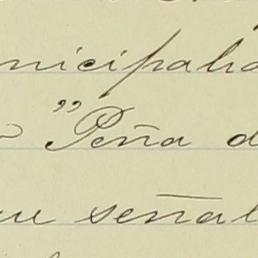 nicipalid
"Peña d
señal